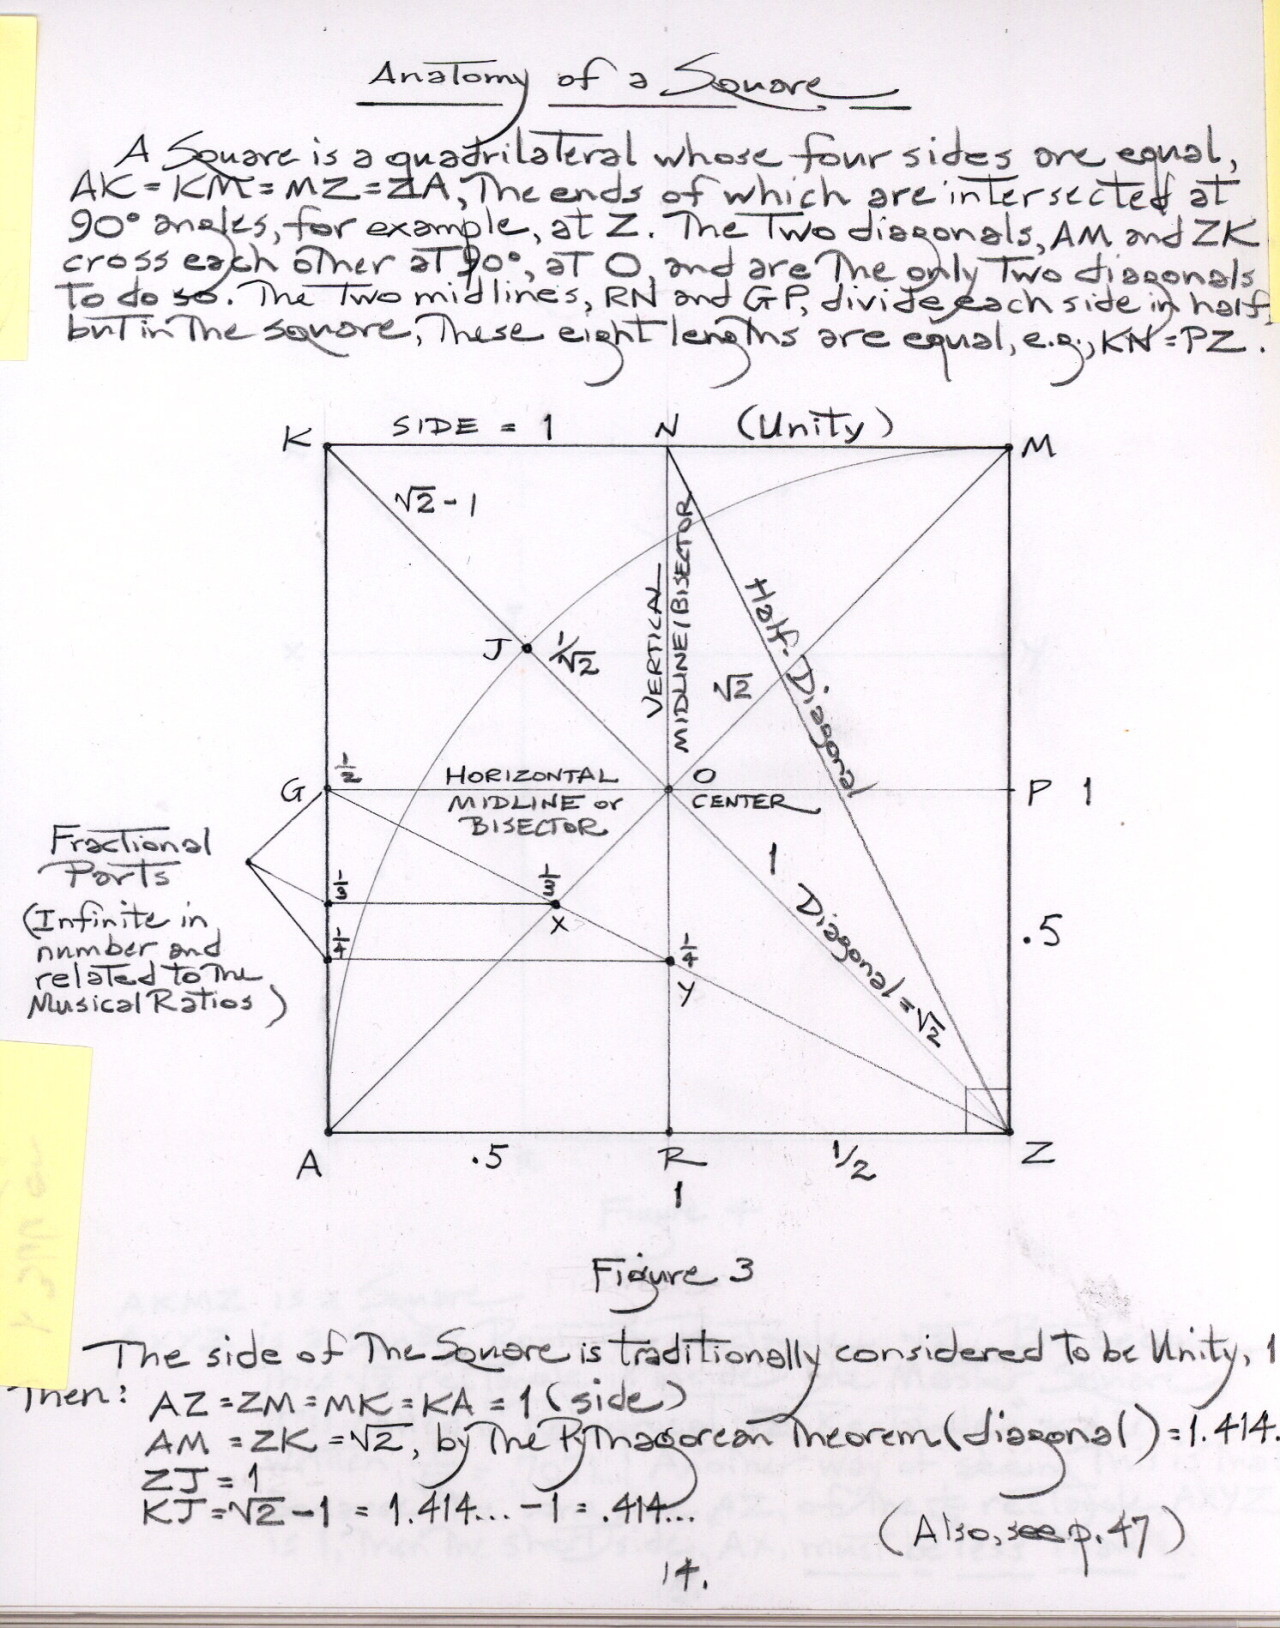 Anatomy of a Square
A Square is a quadrilateral whose four sides are equal,
AK = KM = MZ = ZA, The ends of which are intersected at
90° angles, for example, at Z. The Two diagonals, AM and ZK
cross each other at 90°, at O, and are The only Two diagonals
To do so. The Two midlines, RN and GP, divide each side in half,
but in The square, These eight lengths are equal, e.g., KN = PZ.
K SIDE = 1 N (Unity) M
√2 - 1
VERTICAL
MIDLINE/BISECTOR
Half-Diagonal
J 1/√2
√2
G 1/2 HORIZONTAL
MIDLINE or
BISECTOR
O
CENTER
P 1
Fractional
Parts
(Infinite in
number and
related to The
Musical Ratios)
1/3 1/3
X
1/4 1/4
Y
1
Diagonal = √2
.5
A .5 R 1/2 Z
1
Figure 3
The side of The Square is traditionally considered to be Unity, 1
Then: AZ = ZM = MK = KA = 1 (side)
AM = ZK = √2, by The Pythagorean Theorem (diagonal) = 1.414.
ZJ = 1
KJ = √2 - 1 = 1.414... - 1 = .414...
(Also, see p. 47)
14.